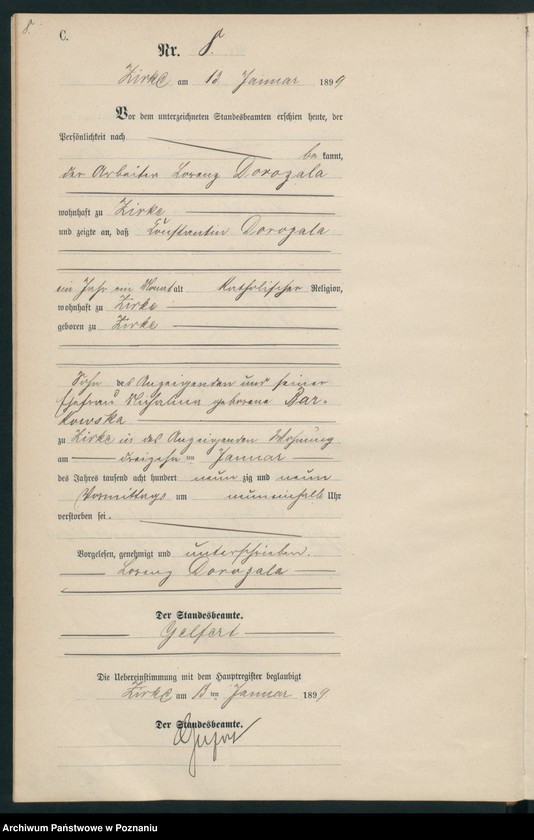 8.
C.
Nr. 8.
Zirke am 13 Januar 1899
Vor dem unterzeichneten Standesbeamten erschien heute, der
Persönlichkeit nach
bekannt,
der Arbeiter Lorenz Dorozala
wohnhaft zu Zirke
und zeigte an, daß Constantin Dorozala
ein Jahr ein Monat alt katholischer Religion,
wohnhaft zu Zirke
geboren zu Zirke
Sohn des Anzeigenden und seiner
Ehefrau geborene Bar-
kowska
zu Zirke in des Anzeigenden Wohnung
am dreizehnten Januar
des Jahres tausend acht hundert neunzig und neun
Vormittags um neuneinhalb Uhr
verstorben sei.
Vorgelesen, genehmigt und unterschrieben.
Lorenz Dorozala
Der Standesbeamte.
Gelfert
Die Uebereinstimmung mit dem Hauptregister beglaubigt
Zirke am 13ten Januar 1899
Der Standesbeamte.
Archiwum Państwowe w Poznaniu